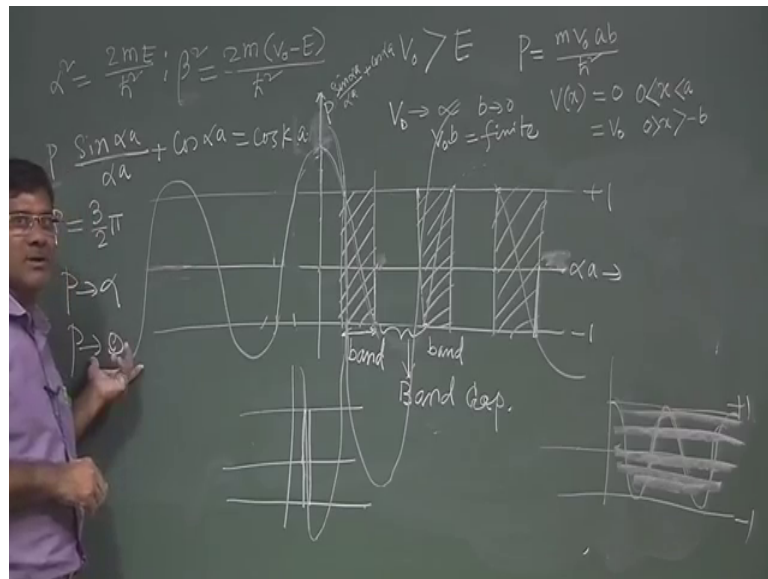 α² = 2mE/ħ² ; β² = 2m(V₀-E)/ħ²
V₀ > E
P = mV₀ab/ħ²
P sinαa/αa + cosαa
V₀ → ∞ b→0
V₀b = finite
V(x) = 0 0<x<a
= V₀ 0>x>-b
P Sin αa/αa + Cos αa = Cos ka
P = 3/2 π
P → α
P → 0
+1
αa →
-1
band
band
Band Gap.
+1
-1